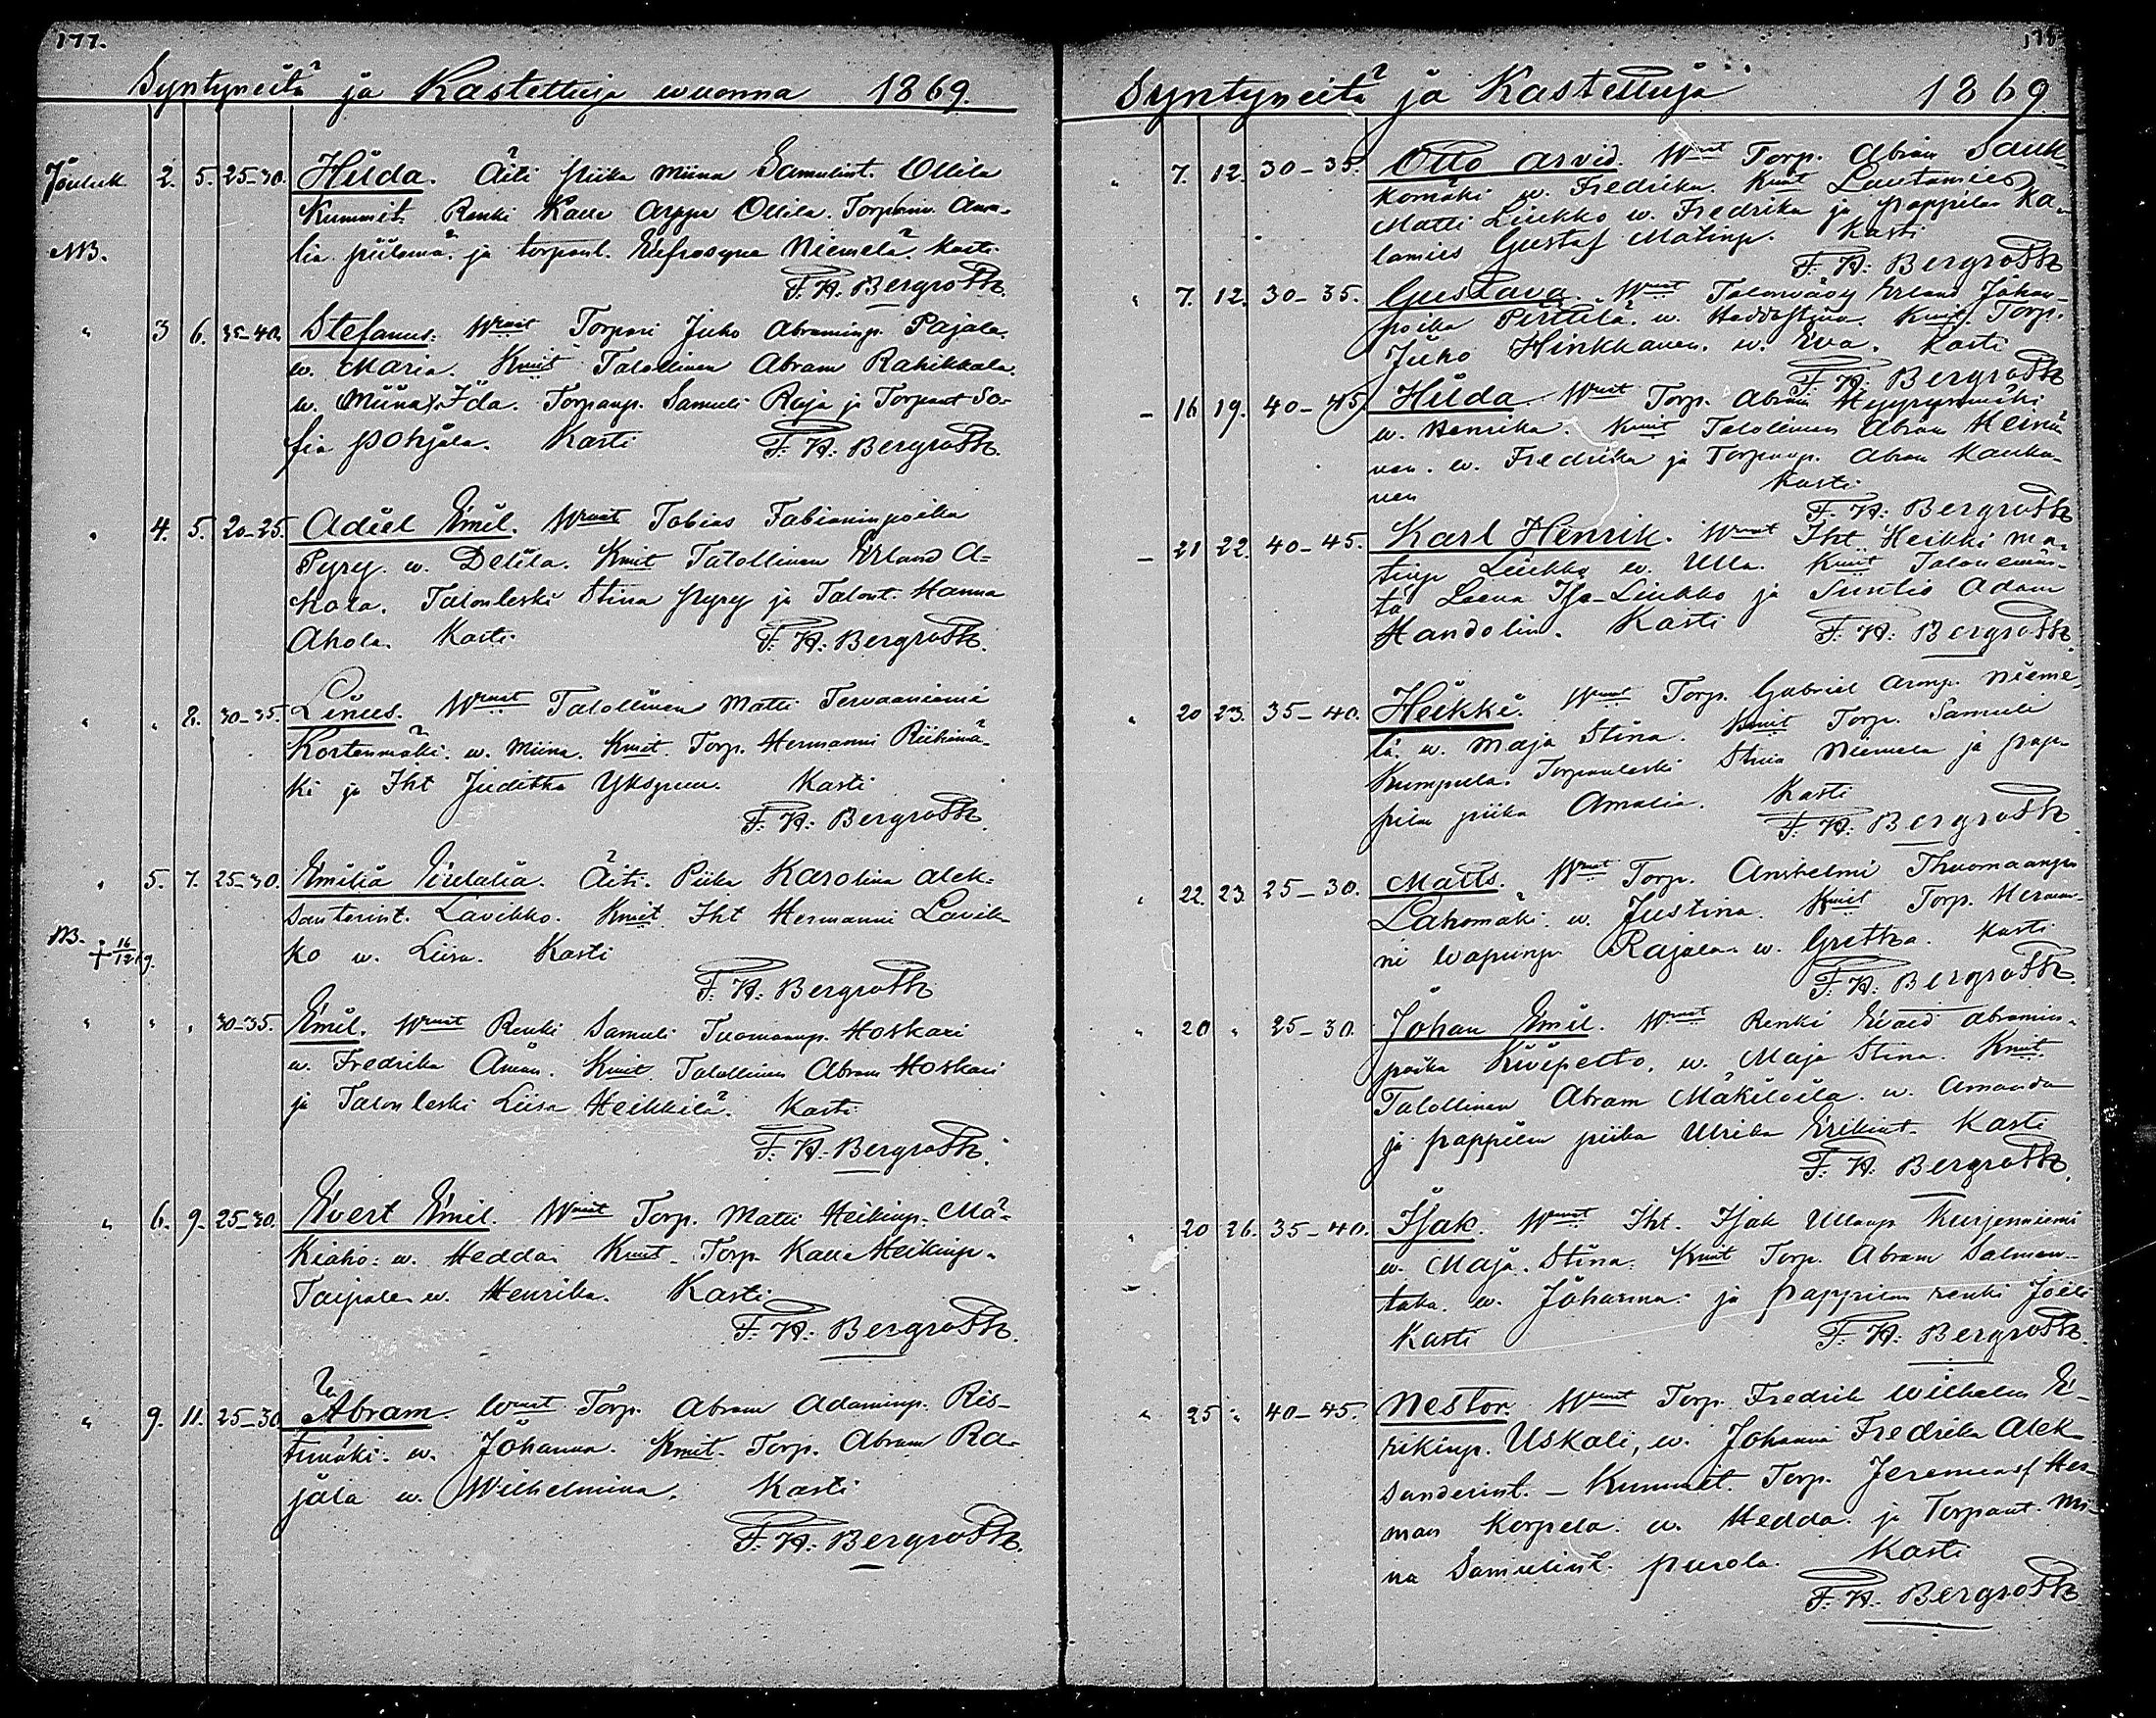 177.
Syntyneitä ja Kastettuja wuonna 1869.
Jouluk. 2. 5. 25-30. Hilda. Äiti piika Miina Samulint. Ollila
Kummit. Renki Kalle Arppe Ollila. Torp. Ama-
NB. lia ja torpant. Eufrosyna Niemelä. Kasti
F. H. Bergroth.
" 3 6. 35-40. Stefanus. Wmat Torpari Juho Abraminp. Pajala.
w. Maria. Kmit Talollinen Abram Rahikkala.
w. Miina Ida. Torpanp. Samuli Raja ja Torpant So-
fia Pohjala. Kasti F. H. Bergroth.
" 4. 5. 20-25. Adiel Emil. Wmat Tobias Fabianinpoika
Pyry. w. Delila. Kmit Talollinen Erland A-
hola. Talonleski Stina Pyry ja Talont. Hanna
Ahola. Kasti F. H. Bergroth.
" " 8. 30-35. Linus. Wmat Talollinen Matti Terwaaniemi
Kortenmäki. w. Miina. Kmit. Torp. Hermanni Riihimä-
ki ja Iht Juditha Kasti
F. H. Bergroth.
" 5. 7. 25-30. Emilia Eulalia. Äiti. Piika Karolina Alek-
santerint. Lavikko. Kmit Iht Hermanni Lavik-
NB. + 16/12 69. ko w. Liisa. Kasti
F. H. Bergroth
" " " 30-35. Emil. Wmat Renki Samuli Tuomaanp. Hoskari
w. Fredrika Kmit. Talollinen Abram Hoskari
ja Talonleski Liisa Heikkilä. Kasti
F. H. Bergroth.
" 6. 9. 25-30. Evert Emil. Wmat Torp. Matti Heikinp. Mä-
kiaho. w. Hedda. Kmit. Torp. Kalle Heikinp.
Taipale w. Henrika. Kasti
F. H. Bergroth.
" 9. 11. 25-30 Abram. Wmat Torp. Abram Adaminp. Ris-
timäki. w. Johanna. Kmit. Torp. Abram Ra-
jala w. Wilhelmina. Kasti
F. H. Bergroth.
178
Syntyneitä ja Kastettuja 1869
" 7. 12. 30-35. Otto Arvid. Wmat Torp. Abram Sauk-
komäki w. Fredrika. Kmit Lautamies
Matti Liukko w. Fredrika ja pappilan ka-
lamies Gustaf Matinp. Kasti
F. H. Bergroth
" 7. 12. 30-35. Gustava. Wmat Erland Johan-
poika Perttilä. w. Kmit. Torp.
Juho Hinkkanen. w. Eva. Kasti
F. H. Bergroth
- 16 19. 40-45. Hilda. Wmat Torp. Abram
w. Henrika. Kmit Talollinen Abram Heinä
nen. w. Fredrika ja Torpanp. Abram Kauha-
nen Kasti
F. H. Bergroth
- 21 22. 40-45. Karl Henrik. Wmat Iht. Heikki Ma-
tinp Liukko w. Ulla. Kmit Talonemän-
tä Leena Iso-Liukko ja Suntio Adam
Mandolin. Kasti F. H. Bergroth
" 20 23. 35-40. Heikki. Wmat Torp. Gabriel Aronp. Nieme-
lä. w. Maja Stina. Kmit Torp. Samuli
Kumpula. Torpanleski Stina Niemelä ja pap-
pilan piika Amalia. Kasti
F. H. Bergroth.
" 22. 23. 25-30. Matts. Wmat Torp. Anshelmi Thuomaanpo
Lahomäki. w. Justina. Kmit Torp. Herman-
ni Wapunp. Rajala. w. Gretha. Kasti
F. H. Bergroth.
" 20 " 25-30. Johan Emil. Wmat Renki Evald Abramin-
poika Kivipelto, w. Maja Stina. Kmit.
Talollinen Abram Mäkilöilä. w. Amanda
ja pappilan piika Ulrika Erikint. Kasti
F. H. Bergroth.
" 20 26. 35-40. Isak. Wmat Iht. Isak Ullanp Kurjenniemi
w. Maja. Stina. Kmit Torp. Abram Salmen-
taka. w. Johanna. ja pappilan renki Joeli
Kasti F. H. Bergroth.
" 25 " 40-45. Nestor. Wmat Torp. Fredrik Wilhelm E-
rikinp. Uskali, w. Johanna Fredrika Alek-
sanderint. - Kummit. Torp. Jeremias Her-
man Korpela. w. Hedda. ja Torpant. Mi-
na Samulint. Purola. Kasti
F. H. Bergroth